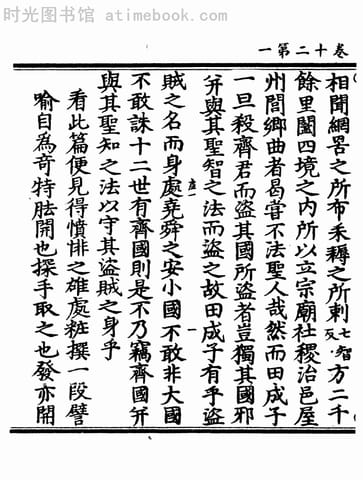 时光图书馆 - atimebook.com
卷十二第一
相聞網罟之所布耒耨之所刺七智反方二千
餘里闔四境之内所以立宗廟社稷治邑屋
州閭鄉曲者曷嘗不法聖人哉然而田成子
一旦殺齊君而盜其國所盜者豈獨其國邪
并與其聖智之法而盜之故田成子有乎盜
賊之名而身處堯舜之安小國不敢非大國
不敢誅十二世有齊國則是不乃竊齊國并
與其聖知之法以守其盜賊之身乎
看此篇便見得憤悱之雄處粧撰一段譬
喻自為奇特胠開也探手取之也發亦開